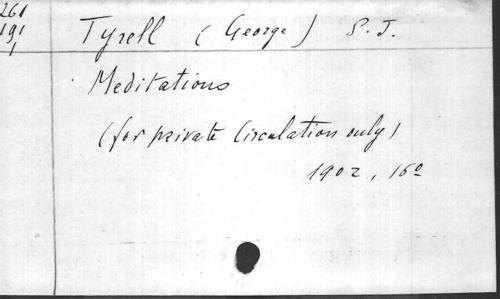 261
191
1
Tyrell (George) S. J.
Meditations
(for private Circulation only)
1902, 16º